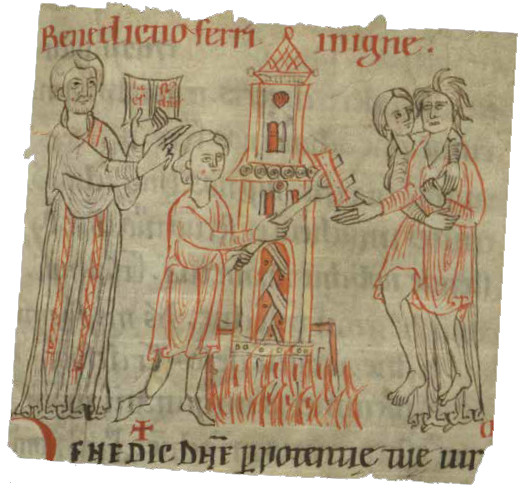 Benedictio·ferri in igne.
BENEDIC DÑE ꝑ potentie tue uir